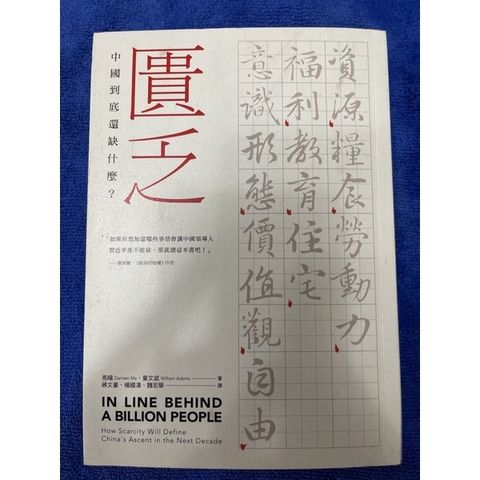 匱乏
中國到底還缺什麼?
資源糧食勞動力
福利教育住宅
意識形態價值觀自由
「如果你想知道哪些事情會讓中國領導人
習近平夜不能寐,那就讀這本書吧!」
Damien Ma、葉文斌 William Adams 著
譯
IN LINE BEHIND
A BILLION PEOPLE
How Scarcity Will Define
China's Ascent in the Next Decade